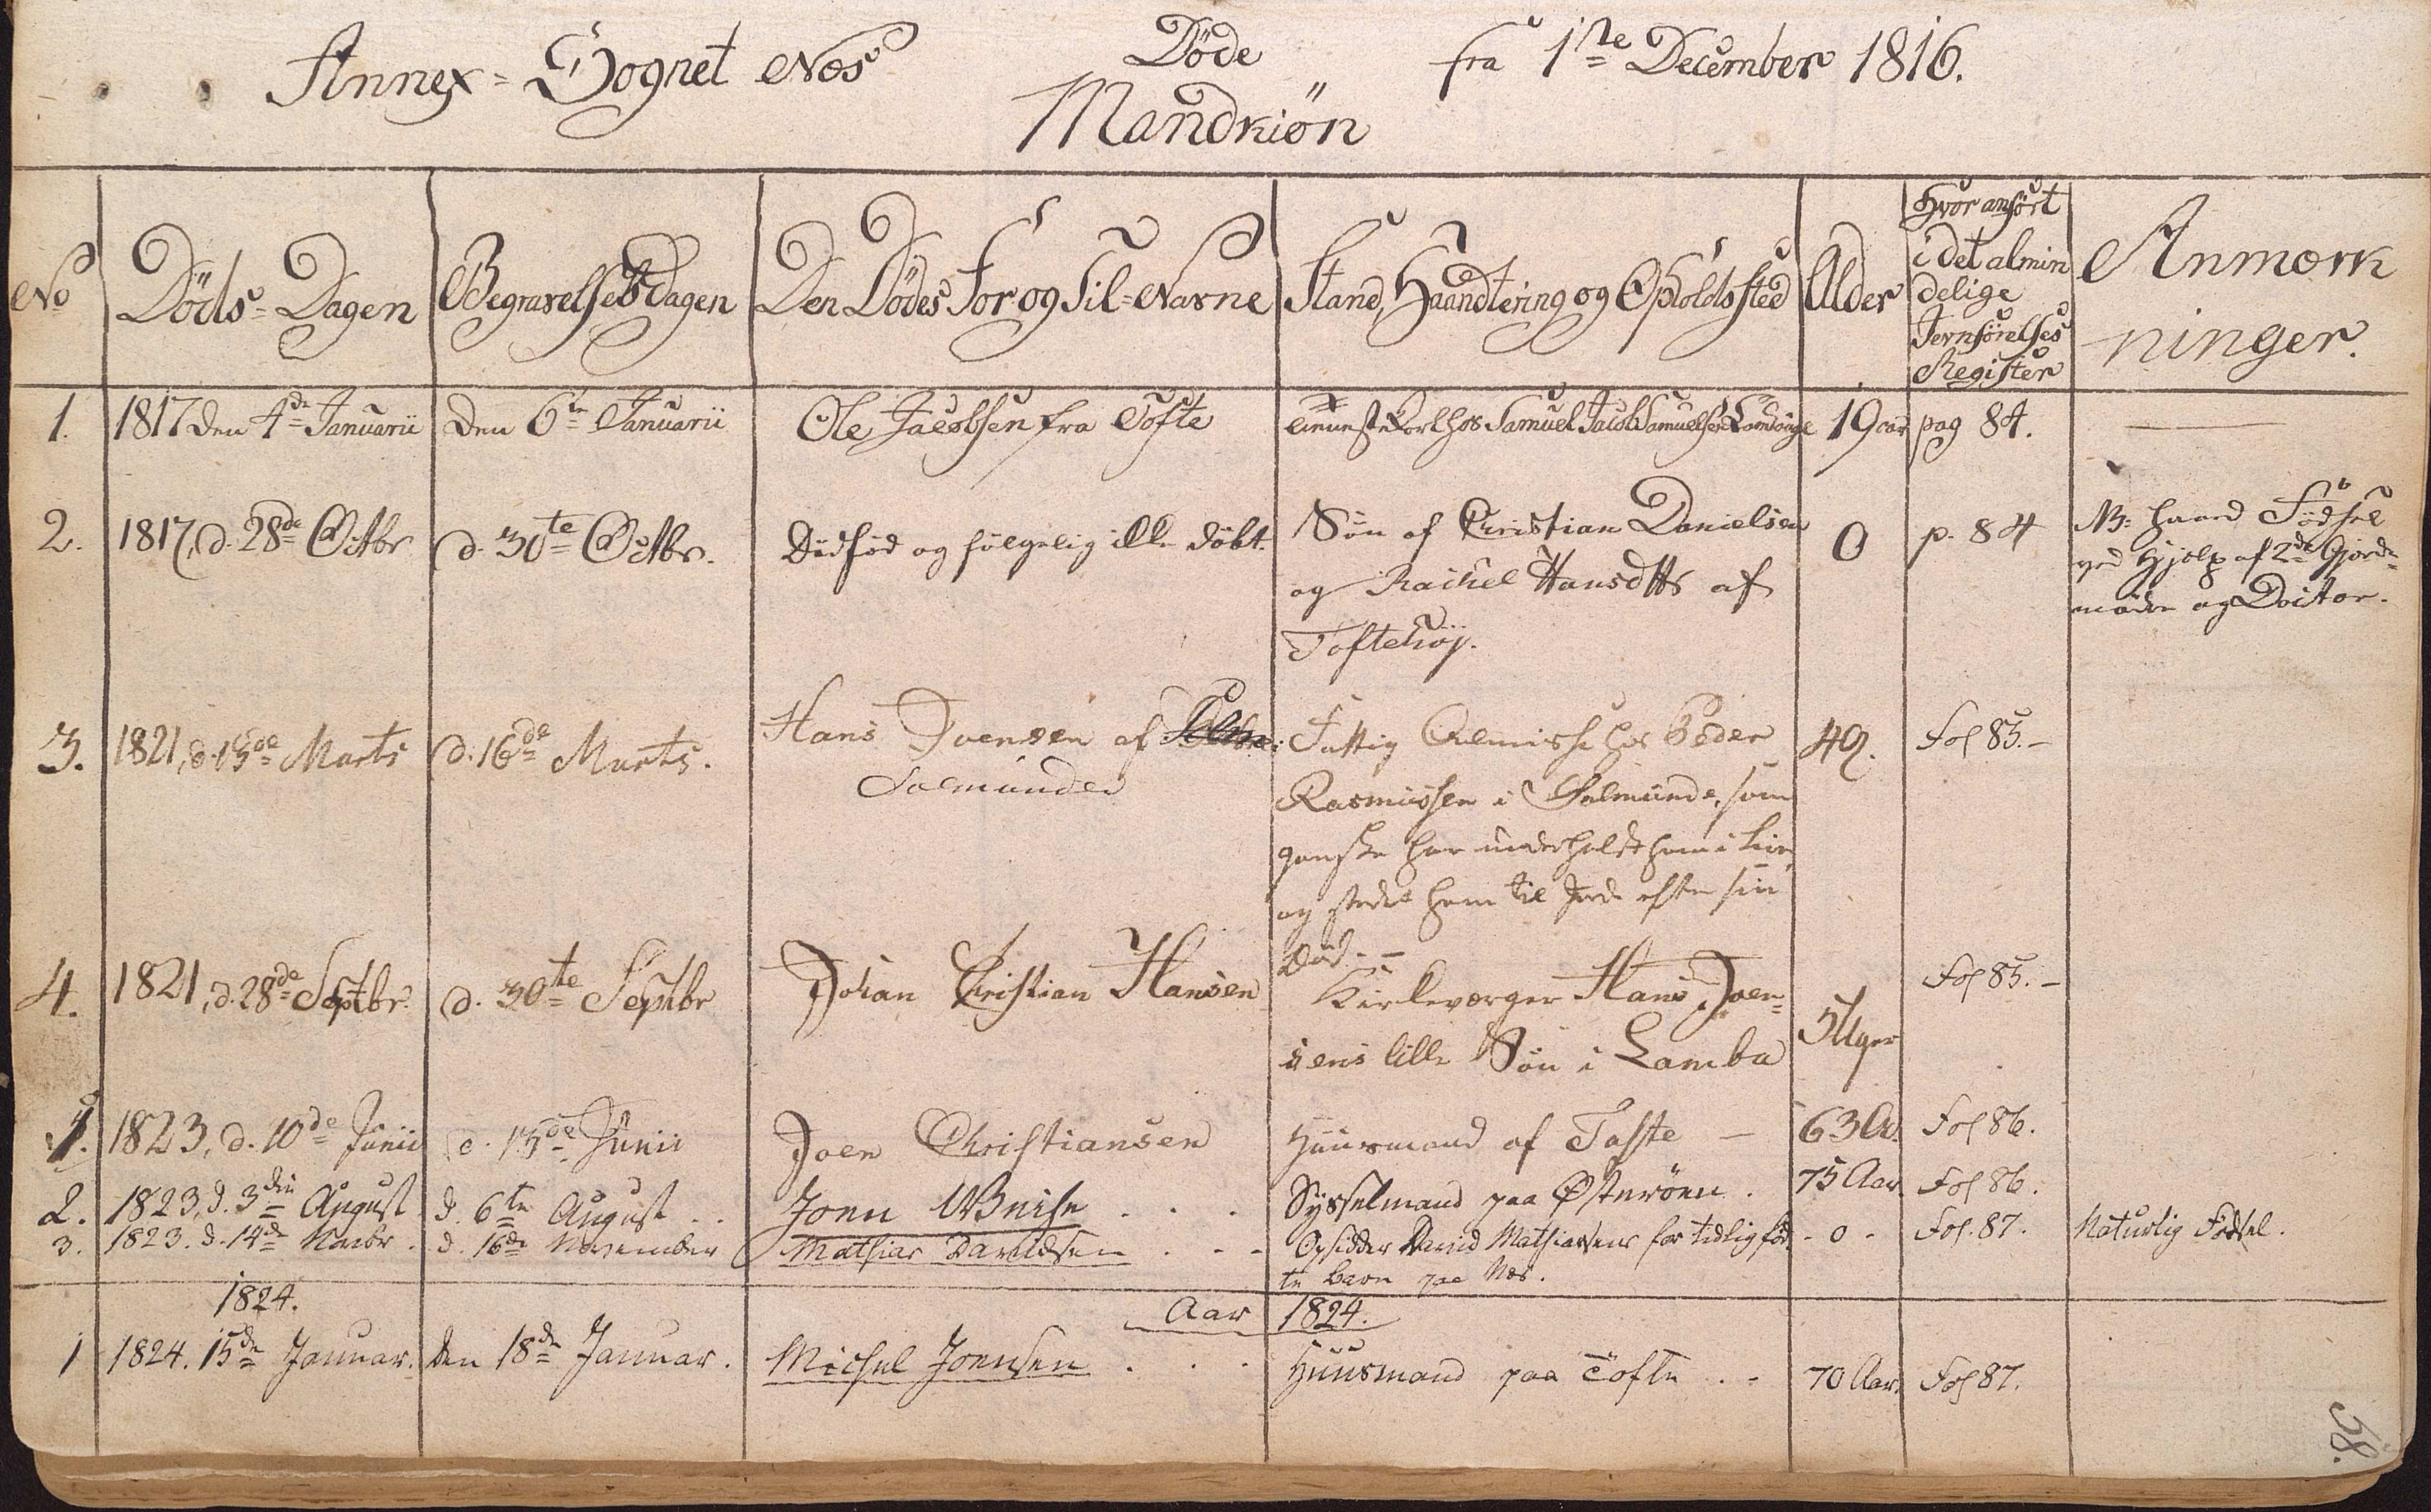 Annex-Sognet Nes
Døde
fra 1ste December 1816.
Mandkiøn
No
Döds-Dagen
Begravelses Dagen
Den Dödes For og Til-Navne
Stand, Haandtering og Opholdssted
Alder
Hvor anfört
i det almin
delige
Jevnförelses
Register
Anmærk
ninger.
1.
1817 den 4de Januarii
den 6te Januarii
Ole Jacobsen fra Tofte
Tieneste Karl hos Samuel Jacob Samuelsen
19 aar
pag 84.
2.
1817, d. 28de Octbr
d. 30te Octbr.
Dödfød og følgelig ikke döbt.
Søn af Christian Danielsen
og Rachel Hansdttr af
Toftehöj.
0
p. 84
NB: haard Födsel
ved Hjelp af 2de Gjorde-
mödre og Doctor.
3.
1821, d. 13de Marts
d. 16de Marts.
Hans Joensen af
Solmunde
Fattig Almisse hos Peder
Rasmussen i Solmunde, som
ganske har underholdt ham i Live
og stædet ham til Jorde efter sin
Död. -
49.
Fol 85. -
4.
1821, d. 28de Septbr.
d. 30te Septbr
Johan Christian Hansen
Kirkeværger Hans Joen-
sens lille Søn i Lamba
3 Uger
Fol 85. -
1.
1823, d. 10de Junii
d. 13de Junii
Joen Christiansen
Huusmand af Tofte -
63 A.
Fol 86.
2.
1823, d. 3die August
d. 6te August . .
Joen Weihe . . .
Sysselmand paa Østeröen .
75 Aar
Fol 86.
3.
1823. d. 14de Novbr.
d. 16de November
Mathias Davidsen . . -
Opsidder David Mathiassens for tidlig föd-
te Barn paa Næs.
- 0 -
Fol. 87.
Naturlig Födsel.
1824.
Aar 1824.
1
1824. 15de Januar.
den 18de Januar.
Michel Joensen . . .
Huusmand paa Tofte . -
70 Aar.
Fol 87.
58.